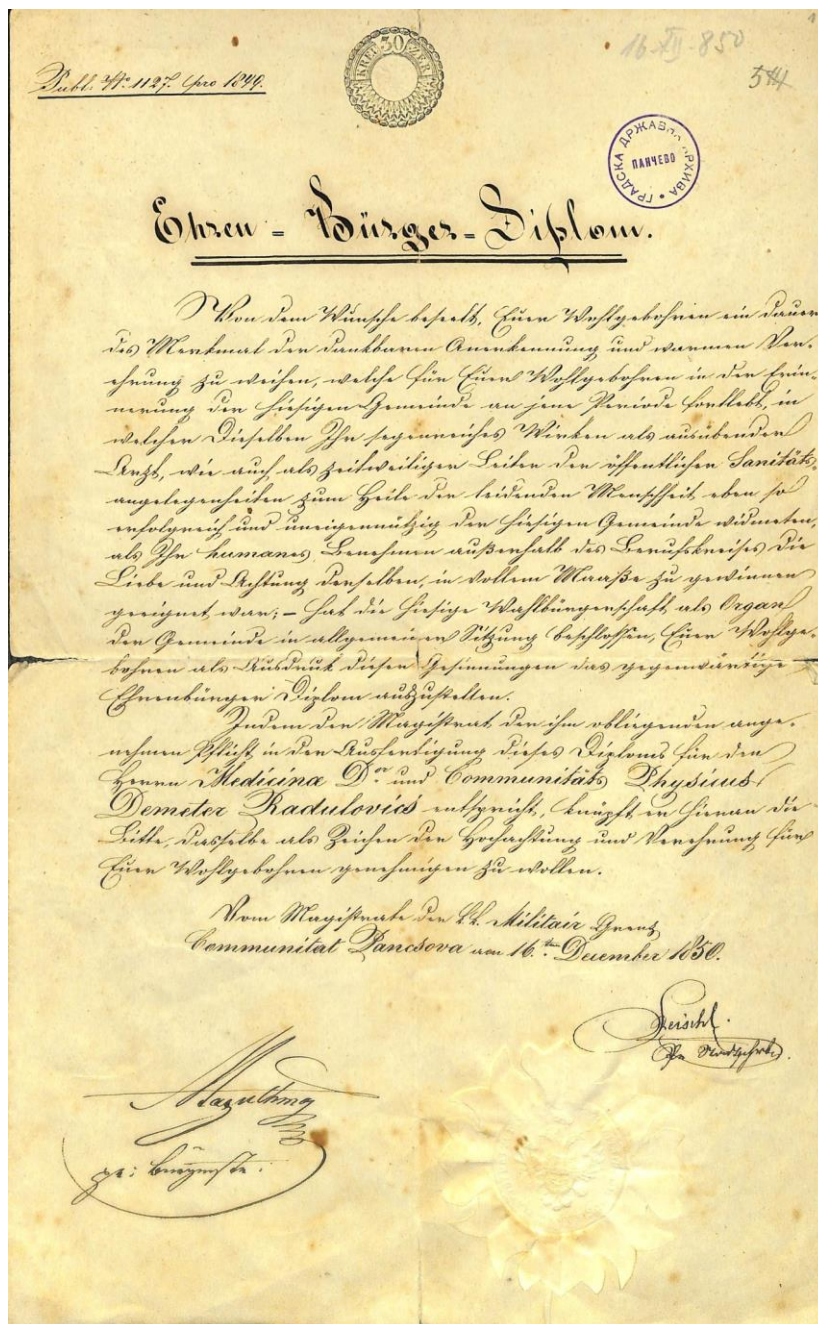 16 XII 850
Publ. No. 1127. pro 1849.
30 KREUZER
ГРАДСКА ДРЖАВНА АРХИВА
ПАНЧЕВО
Ehren-Bürger-Diplom.
Von dem Wunsche beseelt, Euer Wohlgebohren ein dauern
des Merkmal der dankbaren Anerkennung und warmen Ver-
ehrung zu weihen, welche für Euer Wohlgebohren in der Erin-
nerung der hiesigen Gemeinde an jene Periode fortlebt, in
welcher Dieselben Ihr segenreiches Wirken als ausübender
Arzt, wie auch als zeitweiliger Leiter der öffentlichen Sanitäts-
angelegenheiten zum Heile der leidenden Menschheit eben so
erfolgreich und uneigennützig der hiesigen Gemeinde widmeten,
als Ihr humanes Benehmen außerhalb des Berufskreises die
Liebe und Achtung derselben, in vollem Maaße zu gewinnen
geeignet war; – hat die hiesige Wahlbürgerschaft als Organ
der Gemeinde in allgemeiner Sitzung beschlossen, Euer Wohlge-
bohren als Ausdruk dieser Gesinnungen das gegenwärtige
Ehrenbürger Diplom auszustellen.
Indem der Magistrat der ihm obliegenden ange-
nehmen Pflicht, in der Ausfertigung dieses Diploms für den
Herrn Medicinæ Dor und Communitäts Physicus
Demeter Radulovics entspricht, knüpft er hieran die
Bitte, dasselbe als Zeichen der Hochachtung und Verehrung für
Euer Wohlgebohren genehmigen zu wollen.
Vom Magistrate der k.k. Militair Grenz
Communitat Pancsova am 16.ten December 1850.